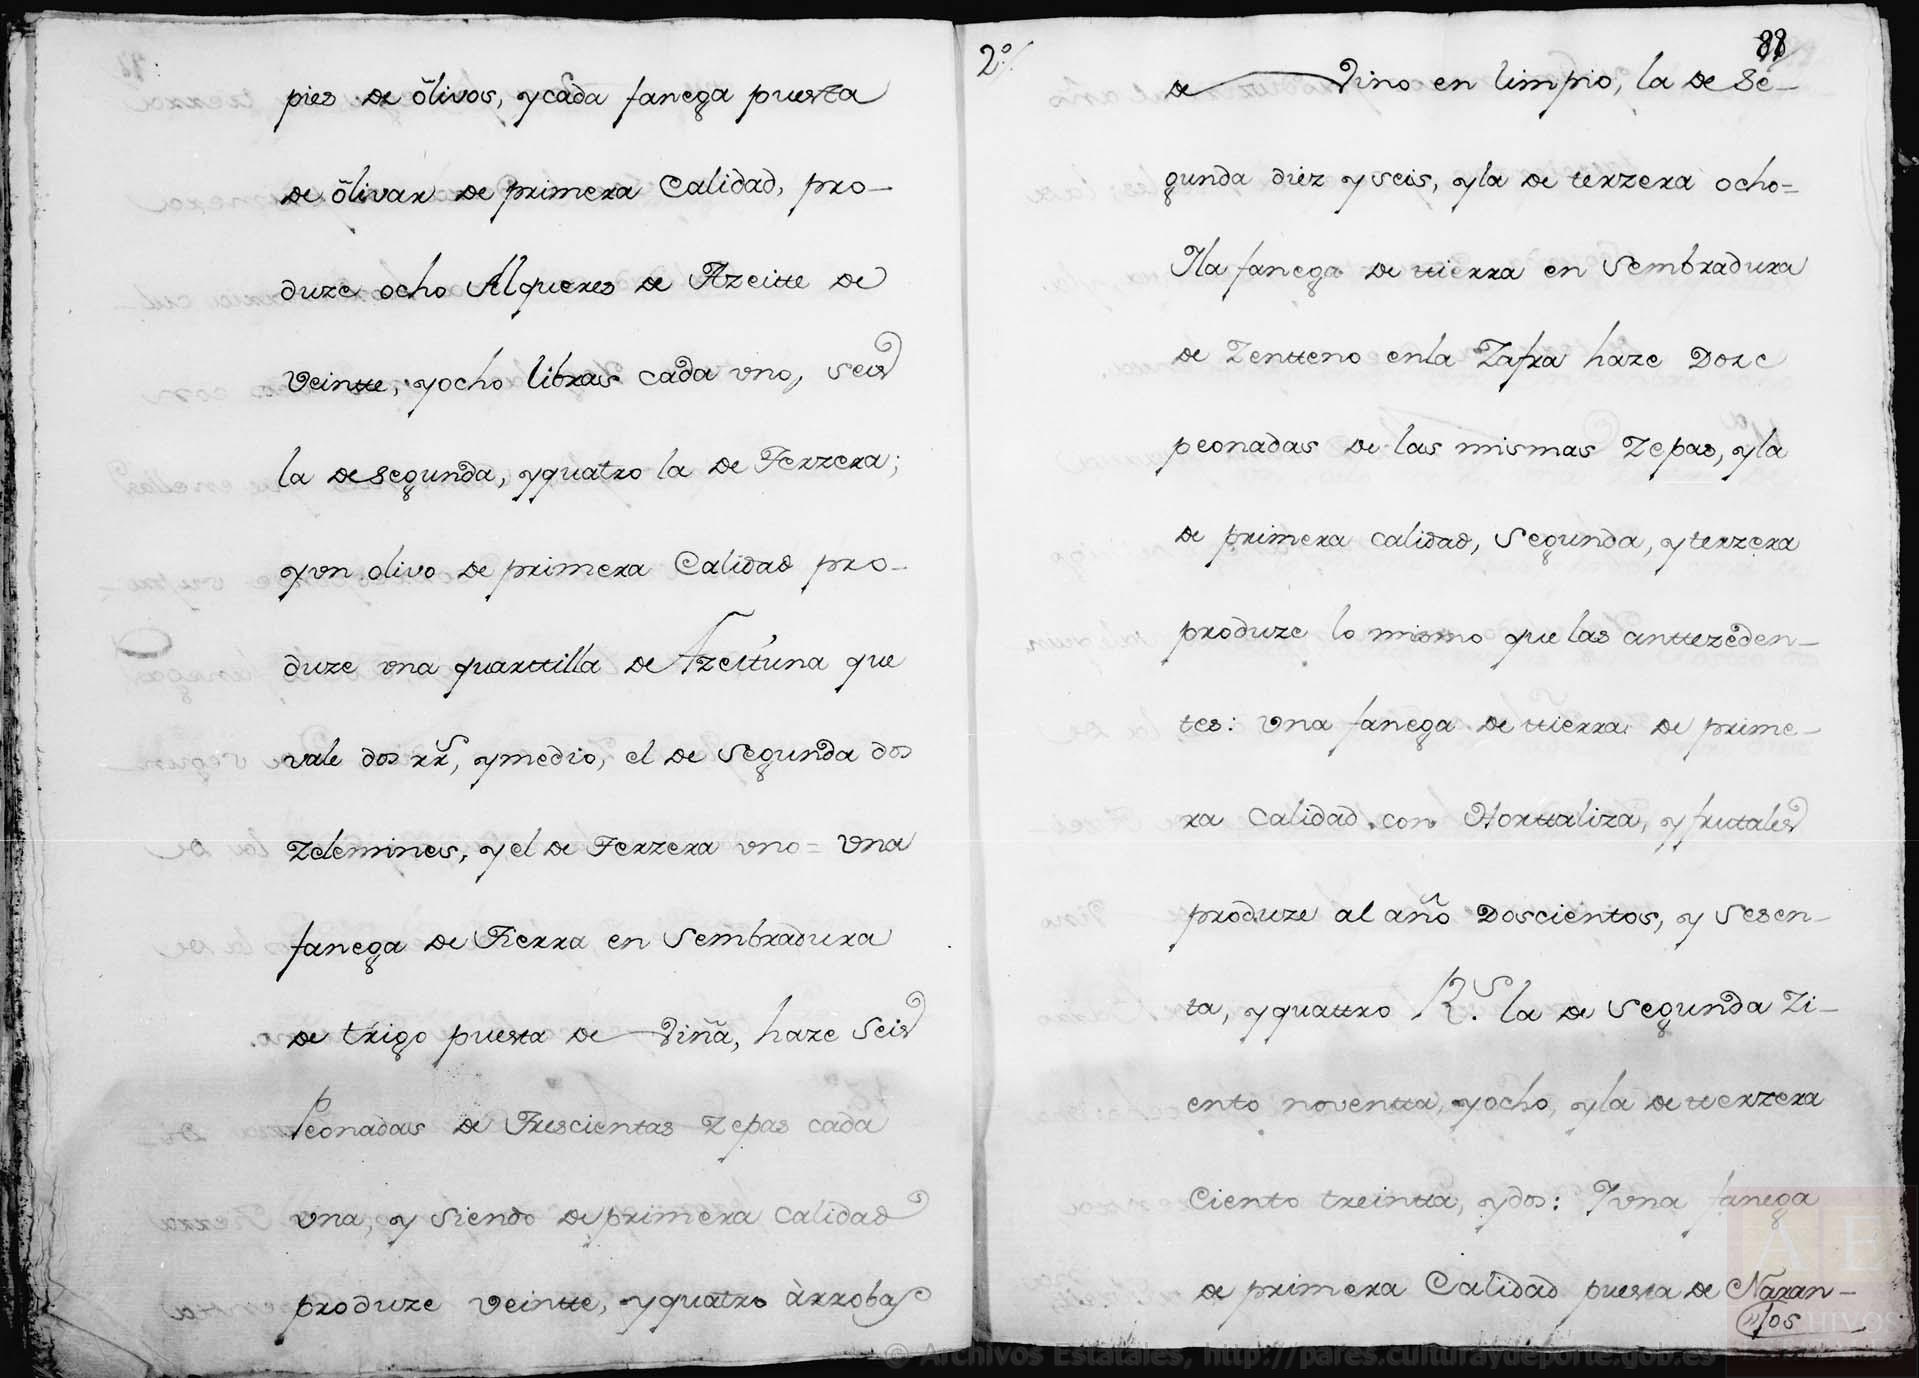 pies de õlivos, ycada fanega puesta
de õlivar de primera Calidad, pro-
duze ocho Alqueres de Azeitte de
Veintte, yocho libras cada vno, seis
la desegunda, yquatro la de Terzera;
yvn olivo de primera Calidad pro-
duze vna quarttilla de Azeituna que
vale dos rr.s, ymedio, el de segunda dos
zelemines, yel de Terzera vno= Vna
fanega de Tierra en Sembradura
de trigo puesta de Viña, haze Seis
Peonadas de Trescientas Zepas cada
vna, y Siendo de primera Calidad
produze veintte, yquatro àrrobas
2º
88
de Vino en limpio, la de Se-
gunda diez yseis, yla de terzera ocho=
Yla fanega de ttierra en Sembradura
de Zentteno enla Zafra haze Doze
peonadas de las mismas Zepas, yla
de primera calidad, Segunda, yterzera
produze lo mismo que las anttezeden-
tes: Vna fanega de ttierra de prime-
ra Calidad con Horttaliza, yfruttales
produze al año Doscientos, y Sesen-
ta, yquattro R.s la de Segunda Zi-
ento noventta, yocho, yla de tterzera
Ciento treintta, ydos: Yvna fanega
de primera Calidad puesta de Naran-
jos
© Archivos Estatales, http://pares.culturaydeporte.gob.es
A E
ARCHIVOS